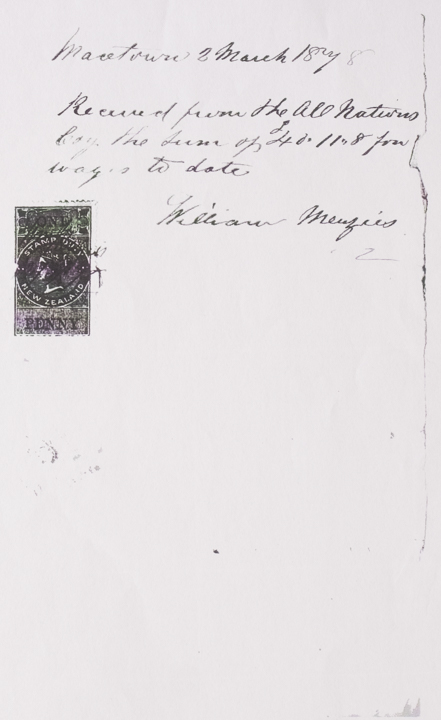 Macetown 2 March 1878
Received from the All Nations
Coy. the sum of £40.11.8 for
wages to date
William Menzies
ONE
STAMP DUTY
NEW ZEALAND
PENNY